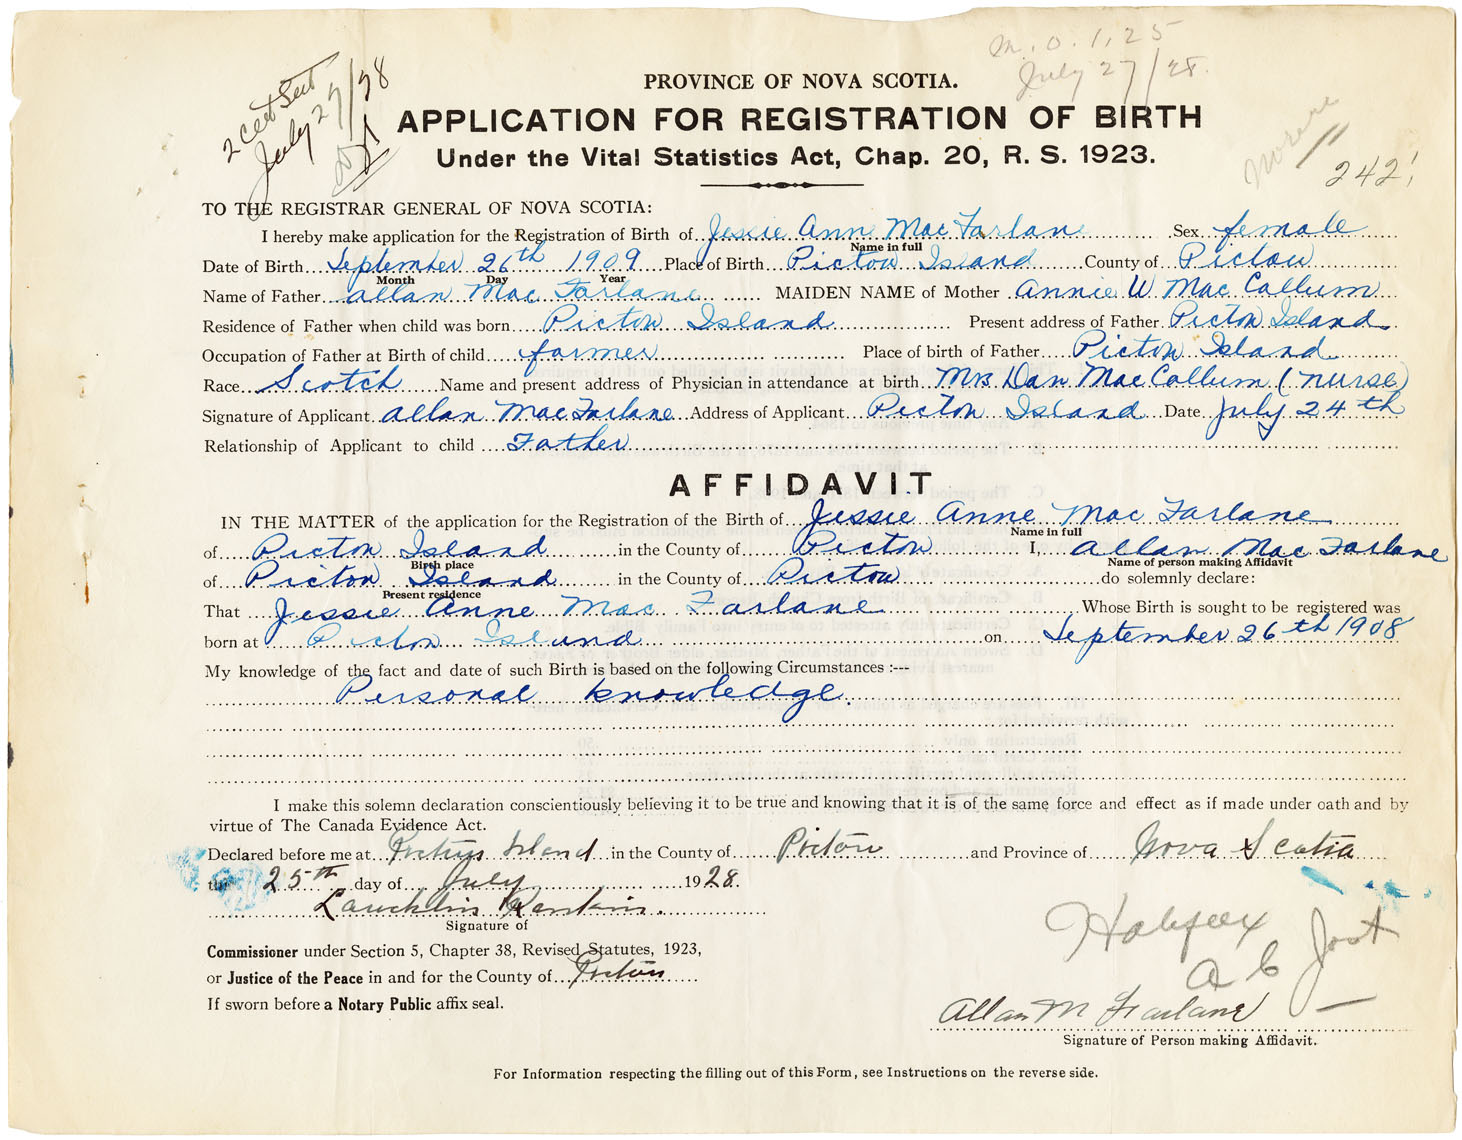 m. o. 1.25
July 27/28.
2 Cert Sent
July 27/28
PROVINCE OF NOVA SCOTIA.
APPLICATION FOR REGISTRATION OF BIRTH
Under the Vital Statistics Act, Chap. 20, R. S. 1923.
242!
TO THE REGISTRAR GENERAL OF NOVA SCOTIA:
I hereby make application for the Registration of Birth of Jessie Anne MacFarlane Sex female
Name in full
Date of Birth September 26th 1909 Place of Birth Pictou Island County of Pictou
Month Day Year
Name of Father allan Mac Farlane MAIDEN NAME of Mother Annie W Mac Callum
Residence of Father when child was born Pictou Island Present address of Father Pictou Island
Occupation of Father at Birth of child farmer Place of birth of Father Pictou Island
Race Scotch Name and present address of Physician in attendance at birth Mrs Dan MacCallum (nurse)
Signature of Applicant allan MacFarlane Address of Applicant Pictou Island Date July 24th
Relationship of Applicant to child Father
AFFIDAVIT
IN THE MATTER of the application for the Registration of the Birth of Jessie Anne Mac Farlane
Name in full
of Pictou Island in the County of Pictou I, allan Mac Farlane
Birth place Name of person making Affidavit
of Pictou Island in the County of Pictou do solemnly declare:
Present residence
That Jessie Anne Mac Farlane Whose Birth is sought to be registered was
born at Pictou Island on September 26th 1908
My knowledge of the fact and date of such Birth is based on the following Circumstances :---
Personal knowledge.
I make this solemn declaration conscientiously believing it to be true and knowing that it is of the same force and effect as if made under oath and by
virtue of The Canada Evidence Act.
Declared before me at Pictou Island in the County of Pictou and Province of Nova Scotia
the 25th day of July 1928.
Lauchlin Rankin.
Signature of
Halifax
A C Jost
Commissioner under Section 5, Chapter 38, Revised Statutes, 1923,
or Justice of the Peace in and for the County of Pictou
If sworn before a Notary Public affix seal.
Allan M Farlane
Signature of Person making Affidavit.
For Information respecting the filling out of this Form, see Instructions on the reverse side.